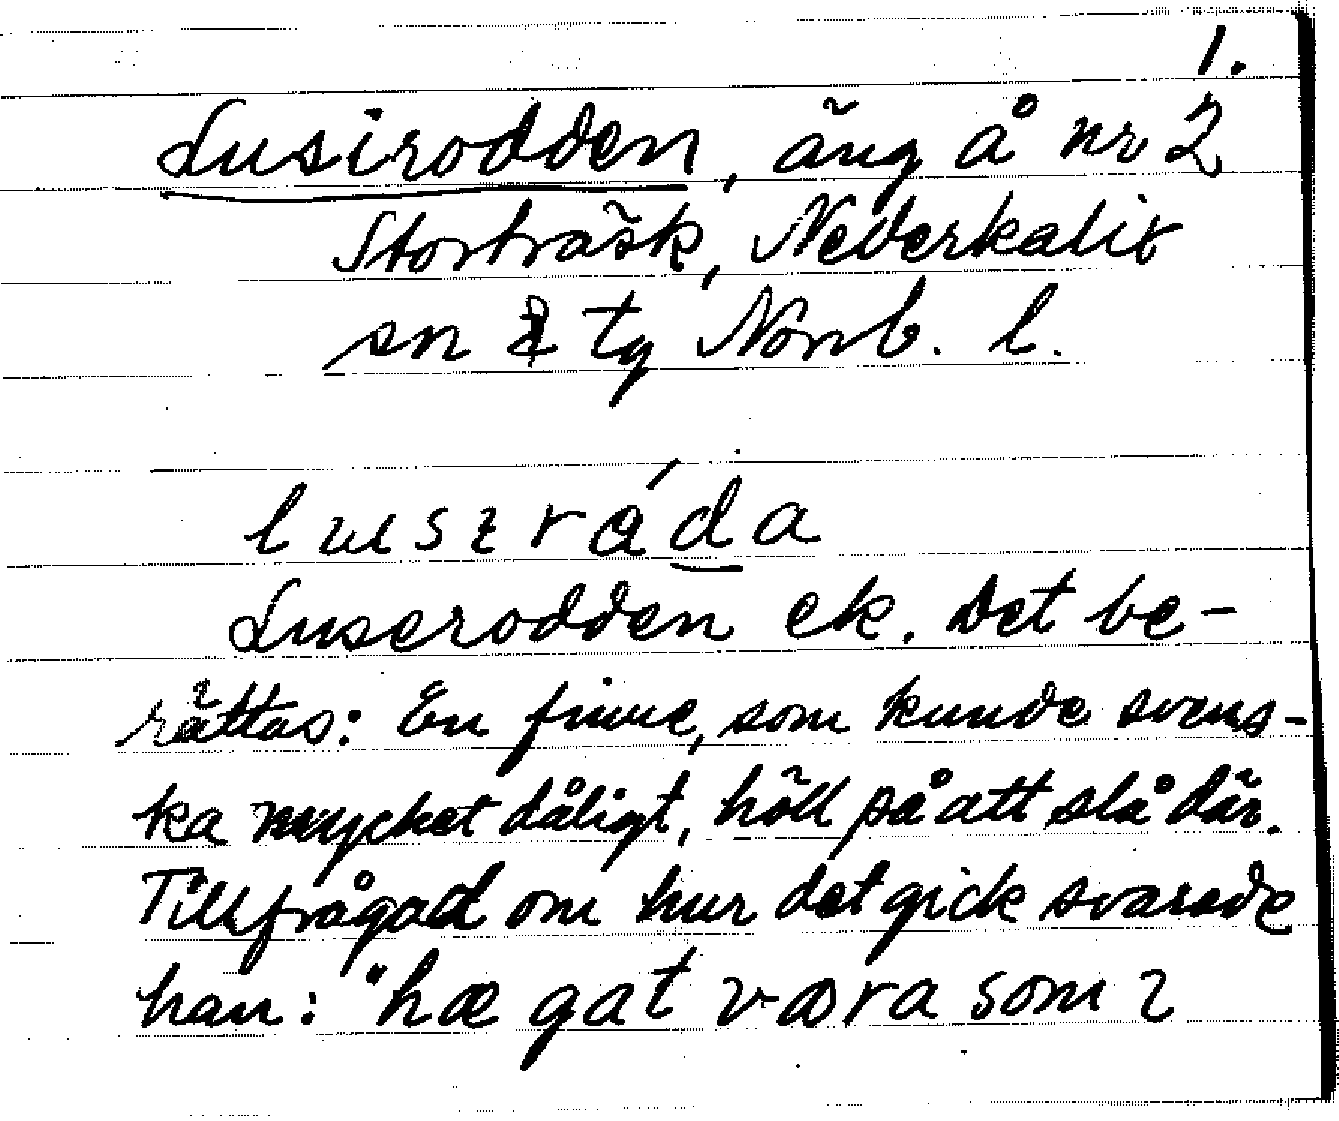 1.
Lusirodden, äng å nr 2
Storträsk, Nederkalix
sn & tg Norrb. l.
lusɩráda
Luserodden ek. Det be-
rättas: En finne, som kunde svens-
ka mycket dåligt, höll på att slå där.
Tillfrågad om hur det gick svarade
han: "hæ gat væra som ɩ